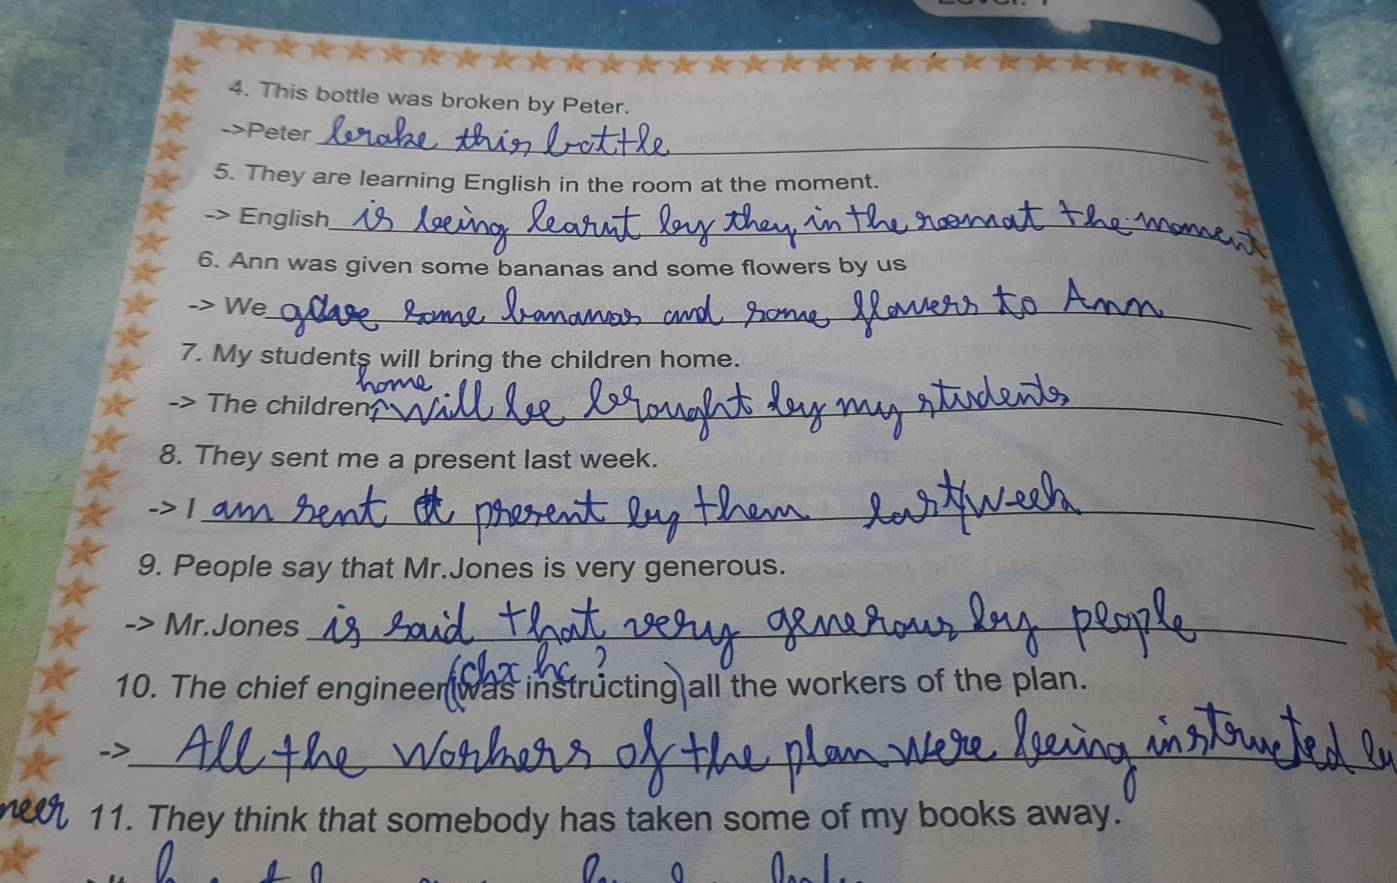 4. This bottle was broken by Peter.
->Peter brake this bottle
5. They are learning English in the room at the moment.
-> English is being learnt by they in the room at the moment
6. Ann was given some bananas and some flowers by us
-> We gave some bananas and some flowers to Ann
7. My students will bring the children home.
home
-> The children will be brought by my students
8. They sent me a present last week.
-> I am sent a present by them last week
9. People say that Mr.Jones is very generous.
-> Mr.Jones is said that very generour by people
10. The chief engineer (was instructing) all the workers of the plan.
-> All the workers of the plan were being instructed by
neer 11. They think that somebody has taken some of my books away.